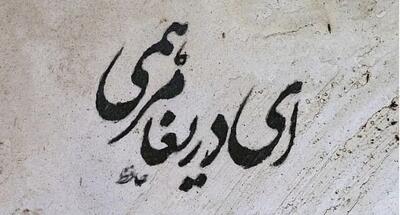 ای دریغا مرهمی
حافظ